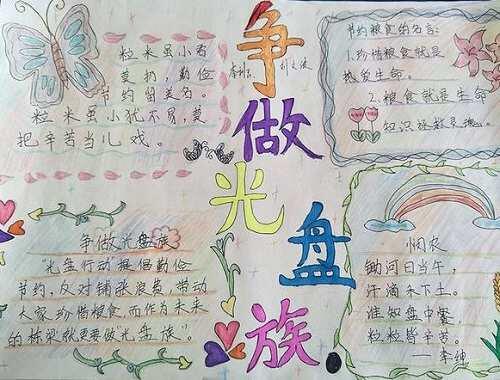 粒米虽小君
莫扔，勤俭
节约留美名。
粒米虽小犹不易，莫
把辛苦当儿戏。
争
做
光
盘
族
节约粮食的名言：
1.珍惜粮食就是
热爱生命。
2.粮食就是生命
知识拯救灵魂。
争做光盘族
"光盘行动"提倡勤俭
节约，反对铺张浪费，带动
大家珍惜粮食而作为未来
的栋梁就更要做"光盘族"。
悯农
锄问日当午，
汗滴禾下土。
谁知盘中餐，
粒粒皆辛苦。
——李绅